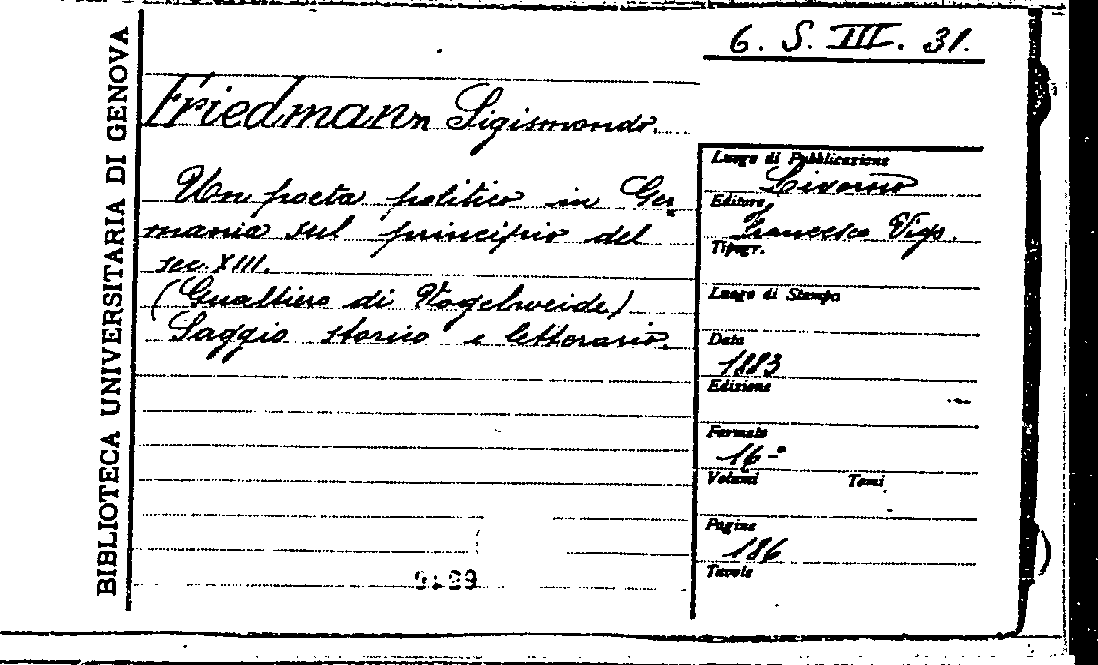 BIBLIOTECA UNIVERSITARIA DI GENOVA
6. S. III. 31.
Friedmann Sigismondo.
Un poeta politico in Ger
mania sul principio del
sec. XIII.
(Gualtiero di Vogelweide)
Saggio storico e letterario.
Luogo di Pubblicazione
Livorno
Editore
Francesco Vigo.
Tipogr.
Luogo di Stampa
Data
1883
Edizione
Formato
16-°
Volumi Tomi
Pagine
186
Tavole